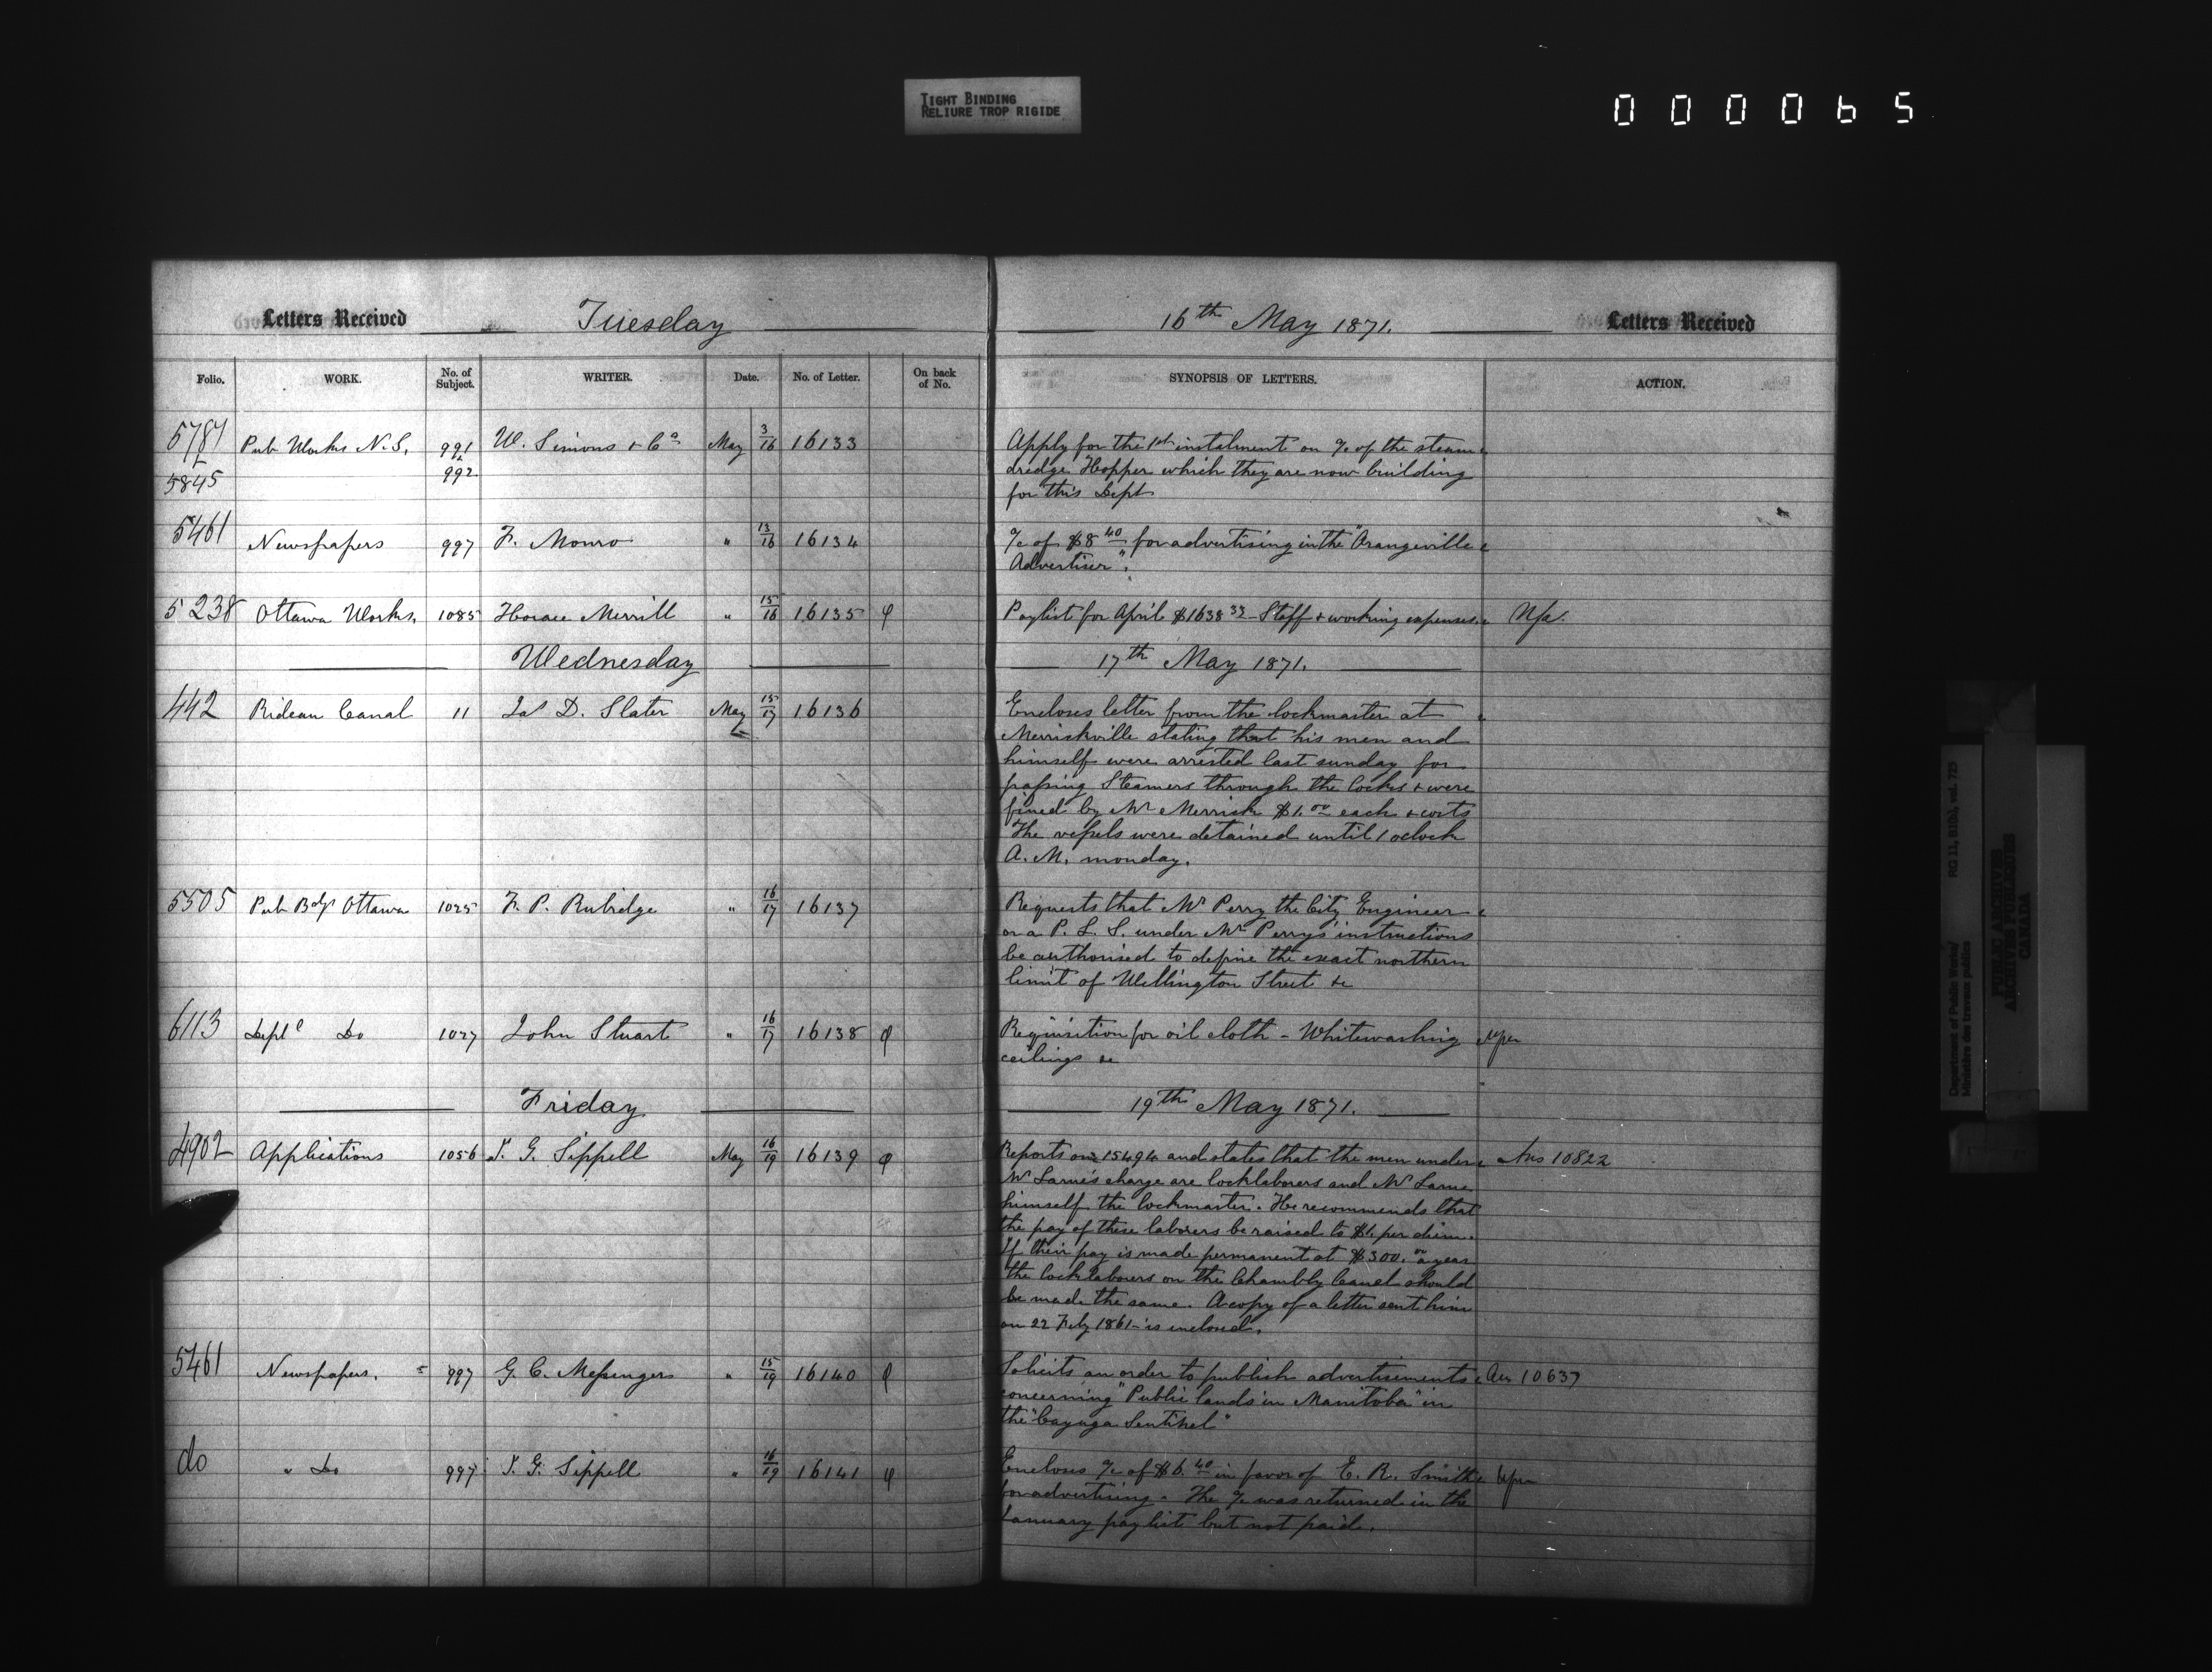 TIGHT BINDING
RELIURE TROP RIGIDE
000065
Letters Received Tuesday 16th May 1871. Letters Received
Folio. WORK. No. of Subject. WRITER. Date. No. of Letter. On back of No. SYNOPSIS OF LETTERS. ACTION.
5787 Pub Works N.S. 991 W. Simons & Co May 3/16 16133 Apply for the 1st instalment on a/c of the steam
& 5845 & 992 dredge Hopper which they are now building
for this Dept
5461 Newspapers 997 F. Monro " 13/16 16134 a/c of $8 40 for advertising in the "Orangeville
Advertiser".
5238 Ottawa Works. 1085 Horace Merrill " 15/16 16135 φ Paylist for April $1638 33 - Staff & working expenses.
Wednesday 17th May 1871.
442 Rideau Canal 11 Jas D. Slater May 15/17 16136 Encloses letter from the lockmaster at
Merrickville stating that his men and
himself were arrested last sunday for
passing Steamers through the locks & were
fined by Mr Merrick $1.00 each & costs
The vessels were detained until 1 oclock
A.M. monday.
5505 Pub Bdgs Ottawa 1025 F. P. Rubidge " 16/17 16137 Requests that Mr Perry the City Engineer
or a P. L. S. under Mr Perrys instructions
be authorised to define the exact northern
limit of Wellington Street &c
6113 Deptl Do 1027 John Stuart " 16/17 16138 φ Requisition for oil cloth - Whitewashing
ceilings &c
Friday 19th May 1871.
4902 Applications 1056 J. G. Sippell May 16/19 16139 φ Reports on 15494 and states that the men under Ans 10822
Mr charge are locklaborers and Mr
himself the lockmaster. He recommends that
the pay of these laborers be raised to $1. per diem.
If their pay is made permanent at $300.00 a year
the locklabourers on the Chambly Canal should
be made the same. A copy of a letter sent him
on 22 Feby 1861 is enclosed.
5461 Newspapers. 997 G. C. Messengers " 15/19 16140 φ Solicits an order to publish advertisements Ans 10637
concerning "Public lands in Manitoba" in
the "Cayuga Sentinel"
do " Do 997 J. G. Sippell " 16/19 16141 φ Encloses a/c of $6.40 in favor of E. R. Smith
for advertising. The a/c was returned in the
January pay list but not paid.
Department of Public Works/ RG 11, B1(b), vol. 725
Ministère des travaux publics
PUBLIC ARCHIVES
ARCHIVES PUBLIQUES
CANADA